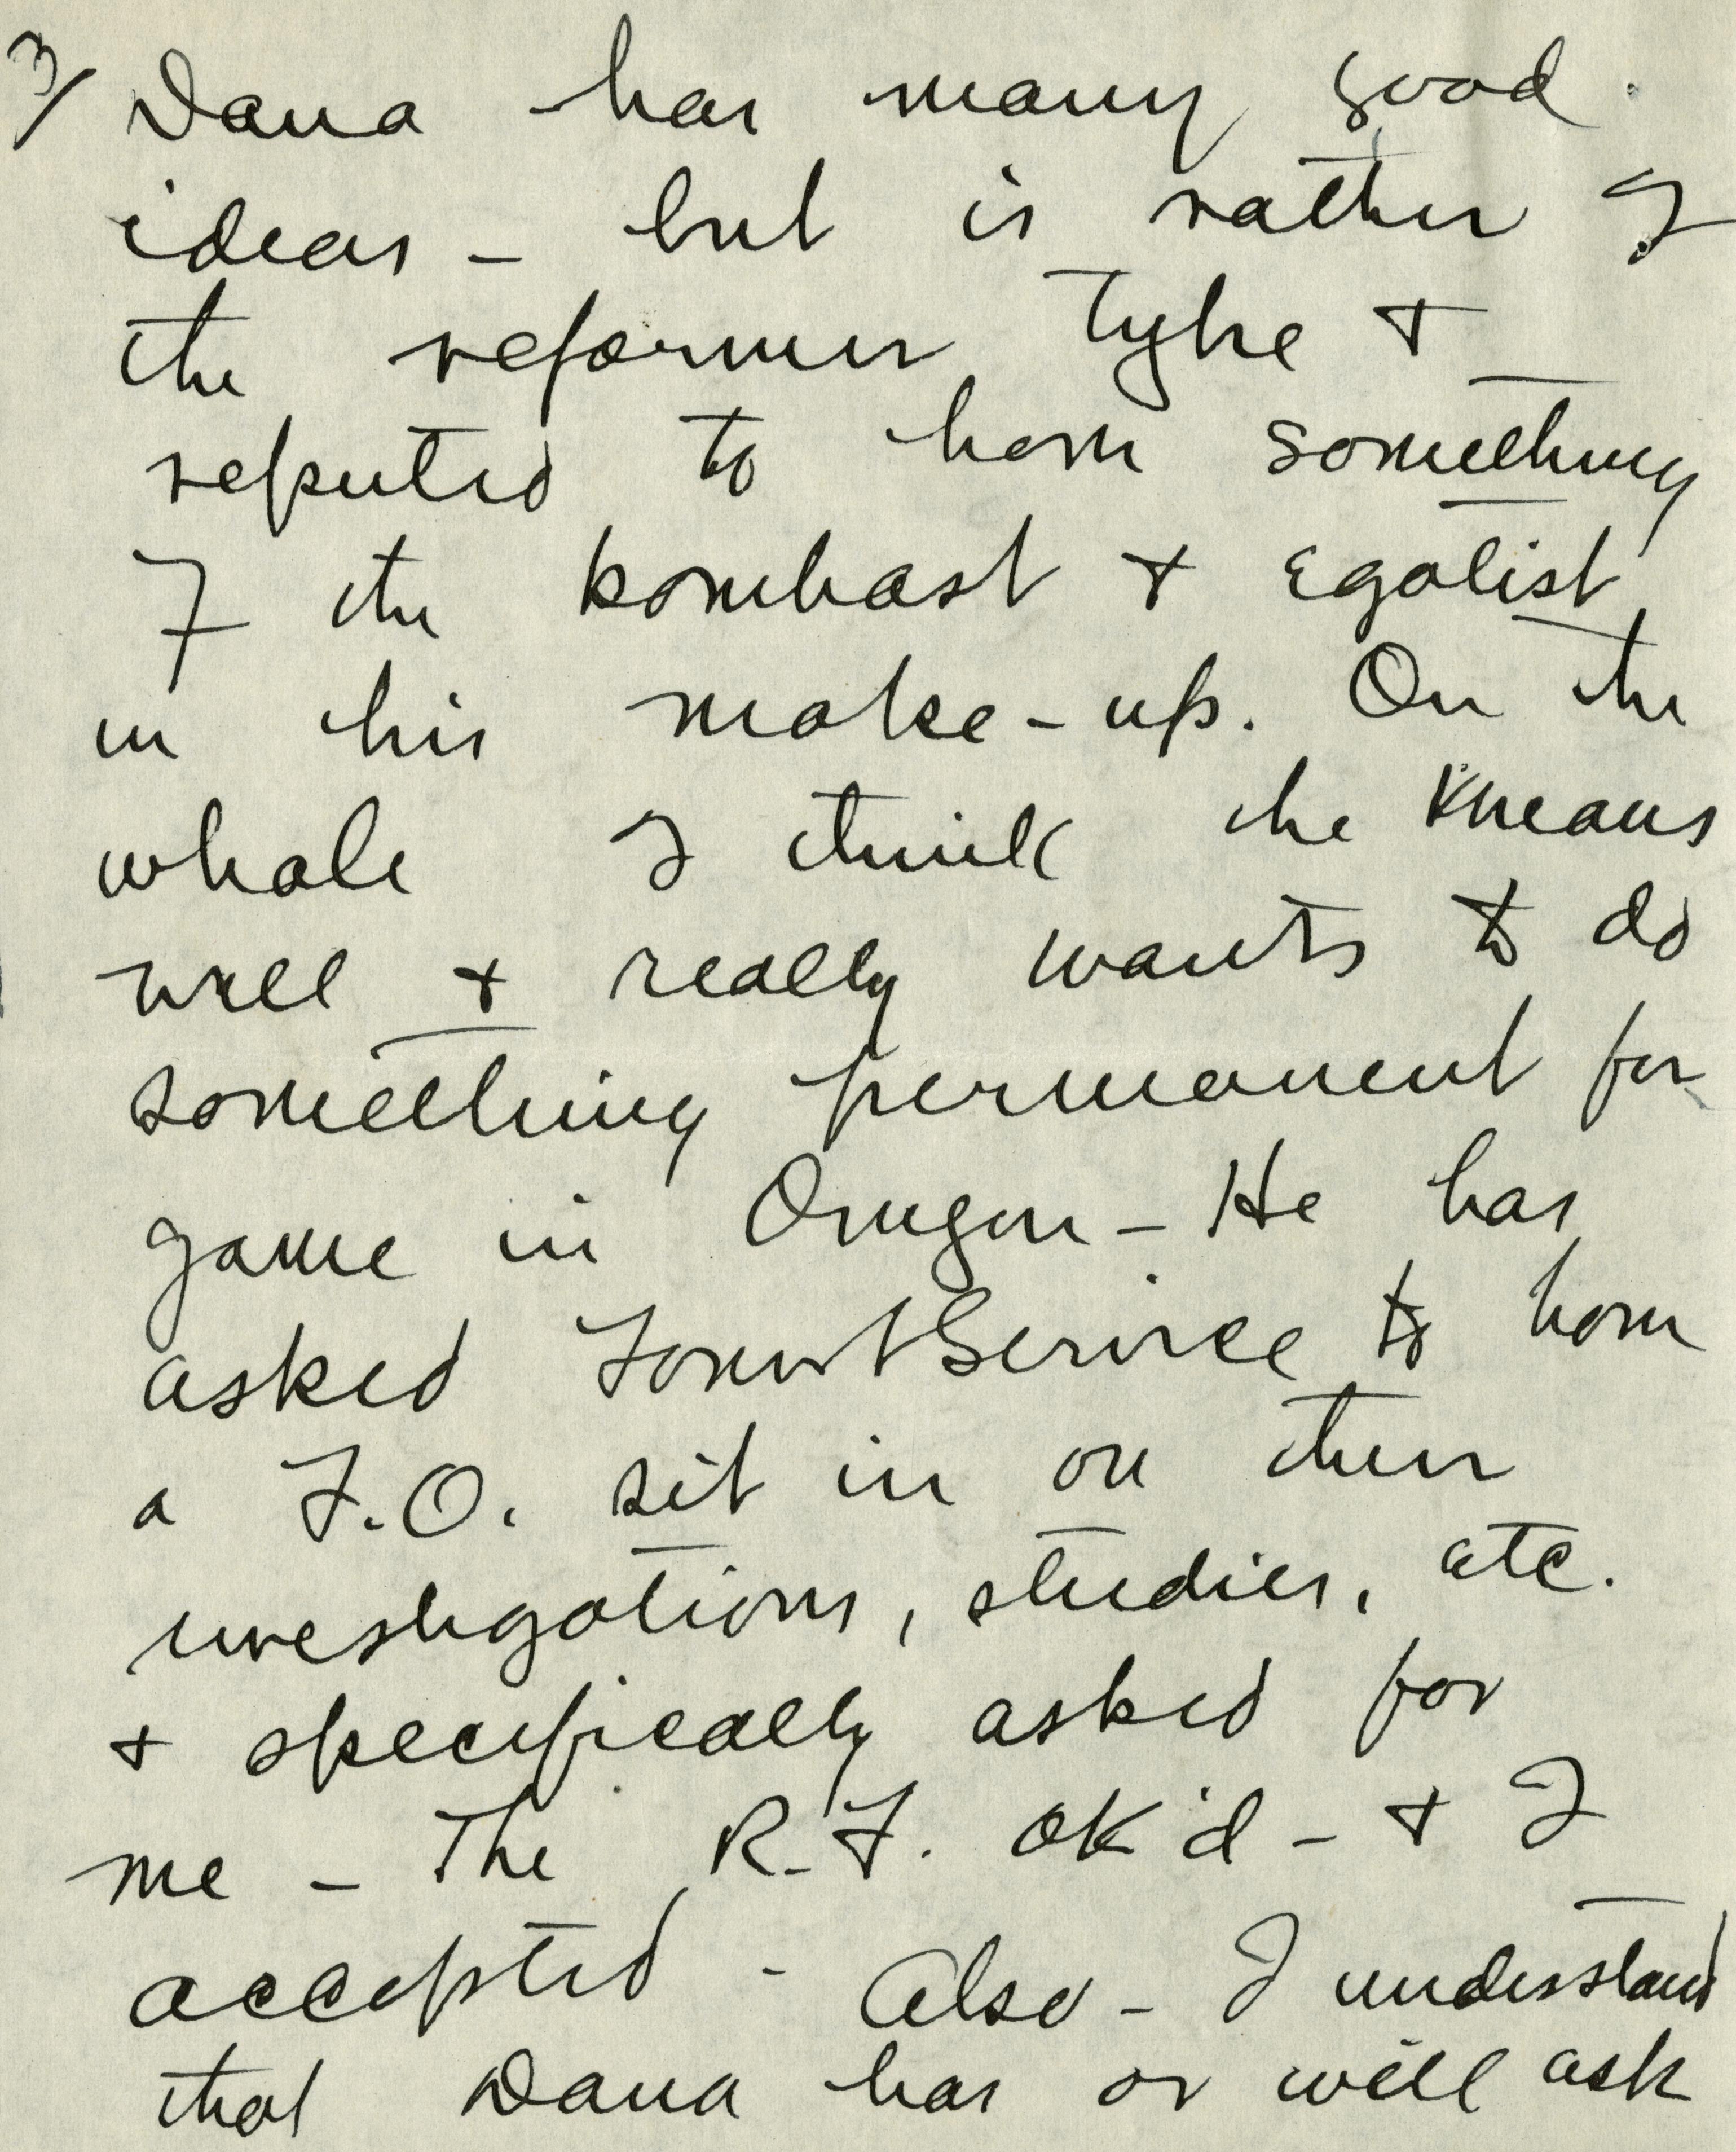 3/ Dana has many good
ideas - but is rather of
the reformer type +
reputed to have something
of the bombast + egotist
in his make-up. On the
whole I think he means
well + really wants to do
something permanent for
game in Oregon - He has
asked Forest Service to have
a F.O. sit in on their
investigations, studies, etc.
+ specifically asked for
me - The R.F. OK'd - + I
accepted - Also - I understand
that Dana has or will ask